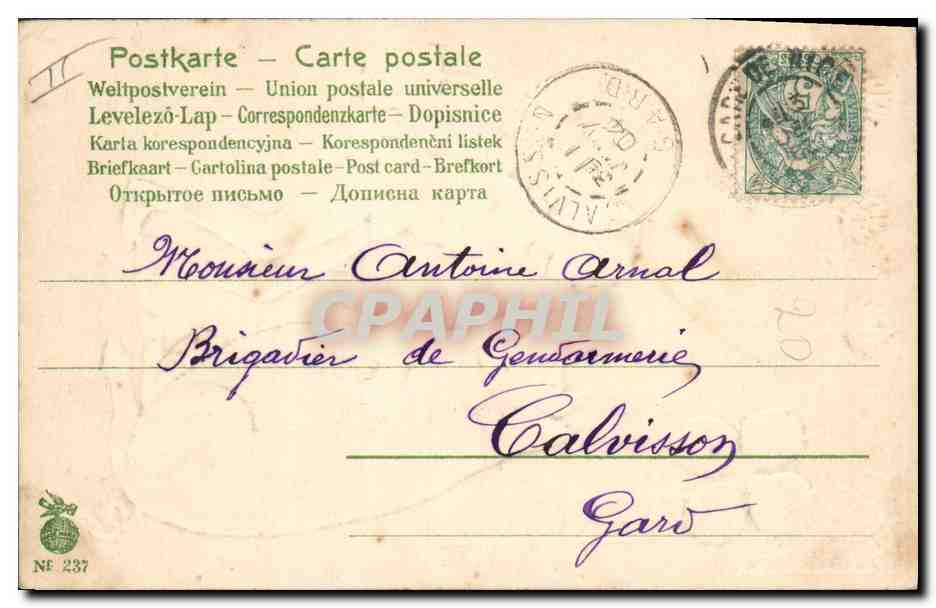 Postkarte – Carte postale
Weltpostverein – Union postale universelle
Levelezô-Lap – Correspondenzkarte – Dopisnice
Karta korespondencyjna – Korespondenční lístek
Briefkaart – Cartolina postale – Post card – Brefkort
Открытое письмо – Дописна карта
II
CALVISSON
GARD
04
GARE DE NICE
Monsieur Antoine Arnal
CPAPHIL
20
Brigadier de Gendarmerie
Calvisson
Gard
Nº 237